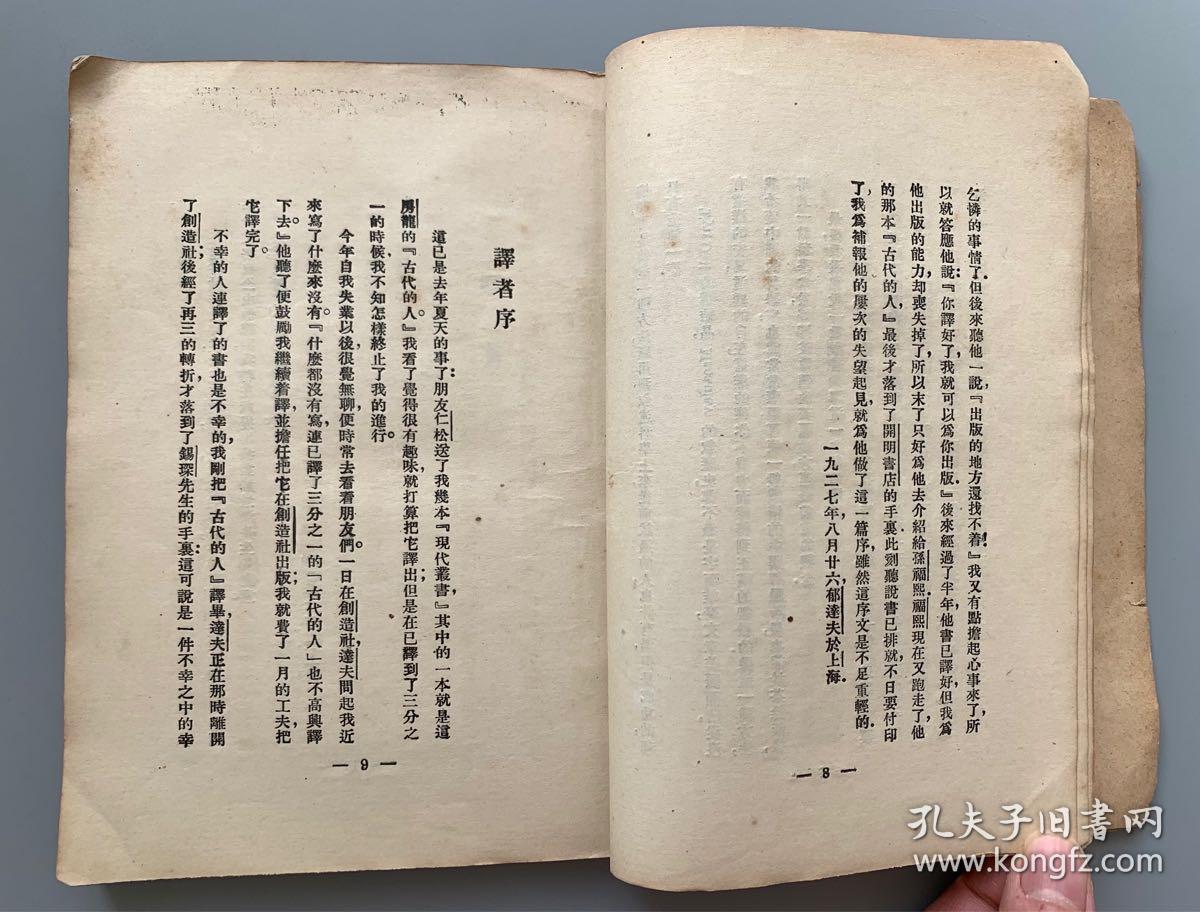 乞憐的事情了.但後來聽他一說:『出版的地方還找不着!』我又有點擔起心事來了,所
以就答應他說:『你譯好了,我就可以爲你出版.』後來經過了半年,他書已譯好,但我爲
他出版的能力,却喪失掉了,所以末了只好爲他去介紹給孫福熙.福熙現在又跑走了,他
的那本『古代的人,』最後才落到了開明書店的手裏.此刻聽說書已排就,不日要付印
了,我爲補報他的屢次的失望起見,就爲他做了這一篇序,雖然這序文是不足重輕的.
一九二七年八月廿六,郁達夫於上海.
— 8 —
譯者序
這已是去年夏天的事了:朋友仁松送了我幾本『現代叢書,』其中的一本就是這
房龍的『古代的人。』我看了覺得很有趣味,就打算把它譯出;但是在已譯到了三分之
一的時候,我不知怎樣終止了我的進行。
今年自我失業以後,很覺無聊,便時常去看看朋友們。一日在創造社,達夫問起我近
來寫了什麼來沒有。『什麼都沒有寫,連已譯了三分之一的「古代的人」也不高興譯
下去。』他聽了便鼓勵我繼續着譯,並擔任把它在創造社出版;我就費了一月的工夫,把
它譯完了。
不幸的人連譯了的書也是不幸的,我剛把『古代的人』譯畢,達夫正在那時離開
了創造社;後經了再三的轉折,才落到了錫琛先生的手裏:這可說是一件不幸之中的幸
— 9 —
孔夫子旧书网
www.kongfz.com